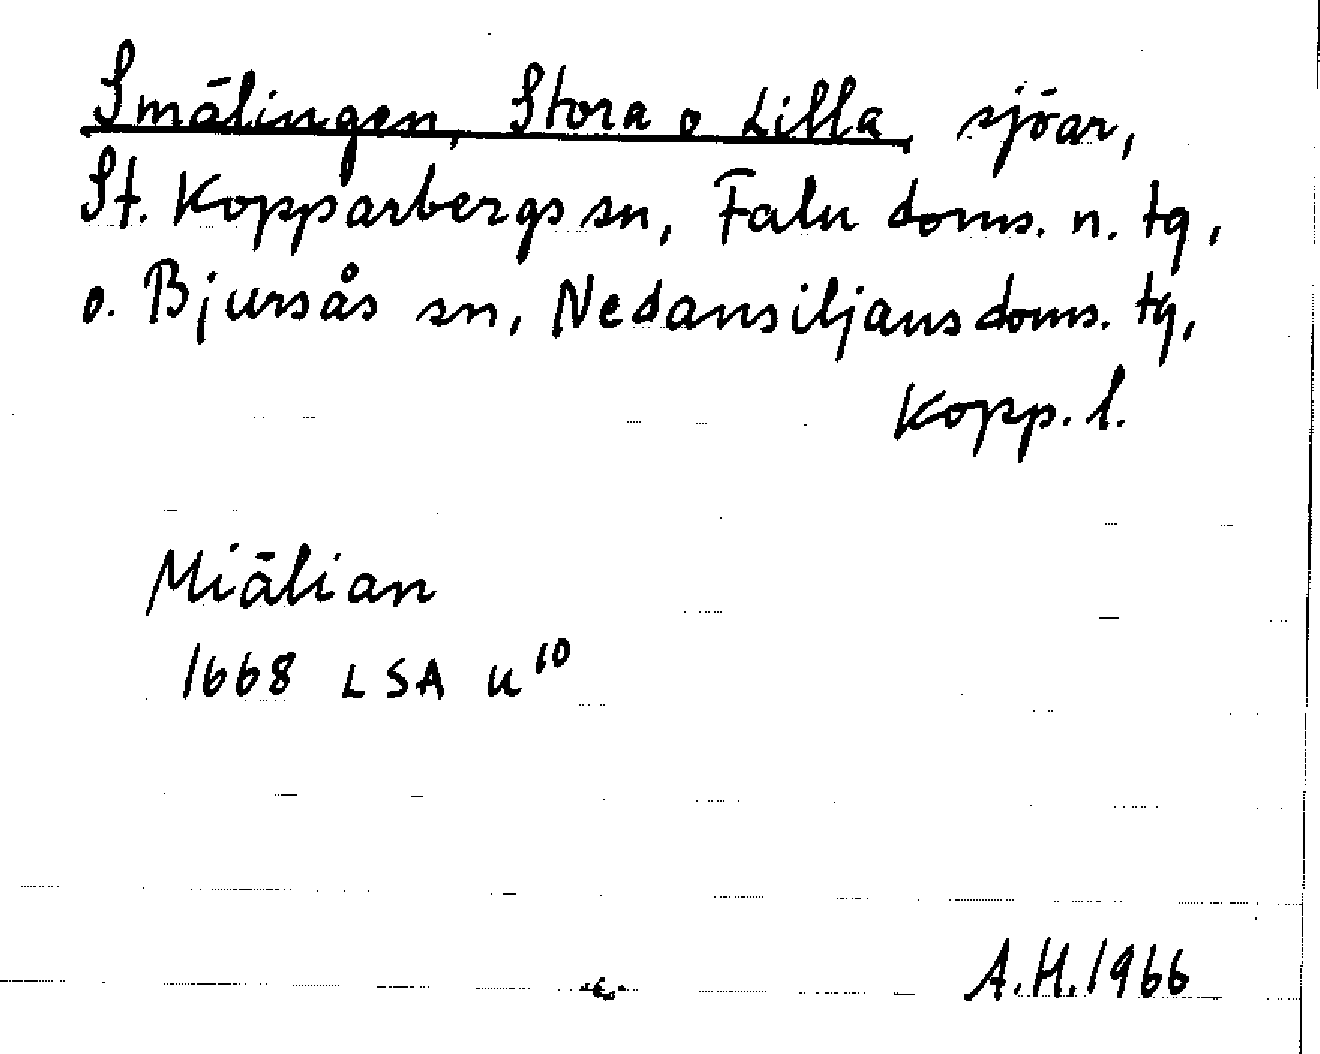 Smälingen, Stora o Lilla, sjöar,
St. Kopparbergs sn, Falu doms. n. tg,
o. Bjursås sn, Nedansiljans doms. tg,
Kopp. l.
Miälian
1668 LSA u¹⁰
A.H. 1966